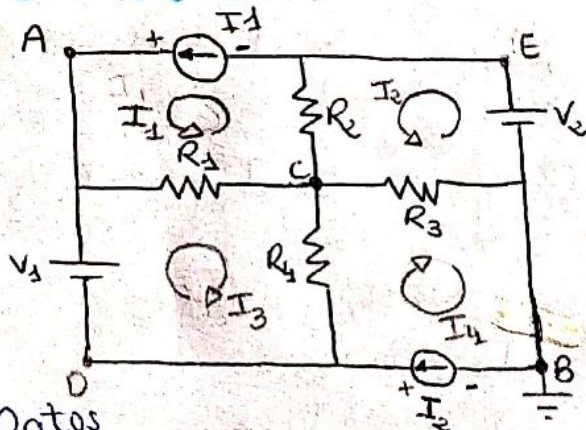 I1
A + - E
I1 R2 I2 V2
R1 C R3
V1 R4
I3 I4
D + - B
I2
Datos